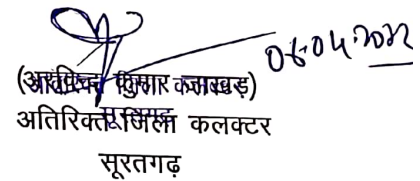 06.04.2022
(अरविन्द कुमार जाखड़)
अतिरिक्त जिला कलक्टर
सूरतगढ़